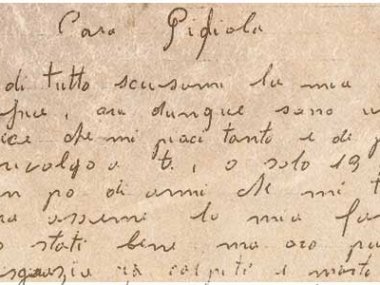 Cara Pidiola
di tutto scusami la mia
, ora dunque sono
ice che mi piaci tanto e di p
rivolgo a t. , o solo 19
n po di anni che mi t
assieme la mia fa
o stati bene ma ora pu
sgrazia ci à colpiti è morto